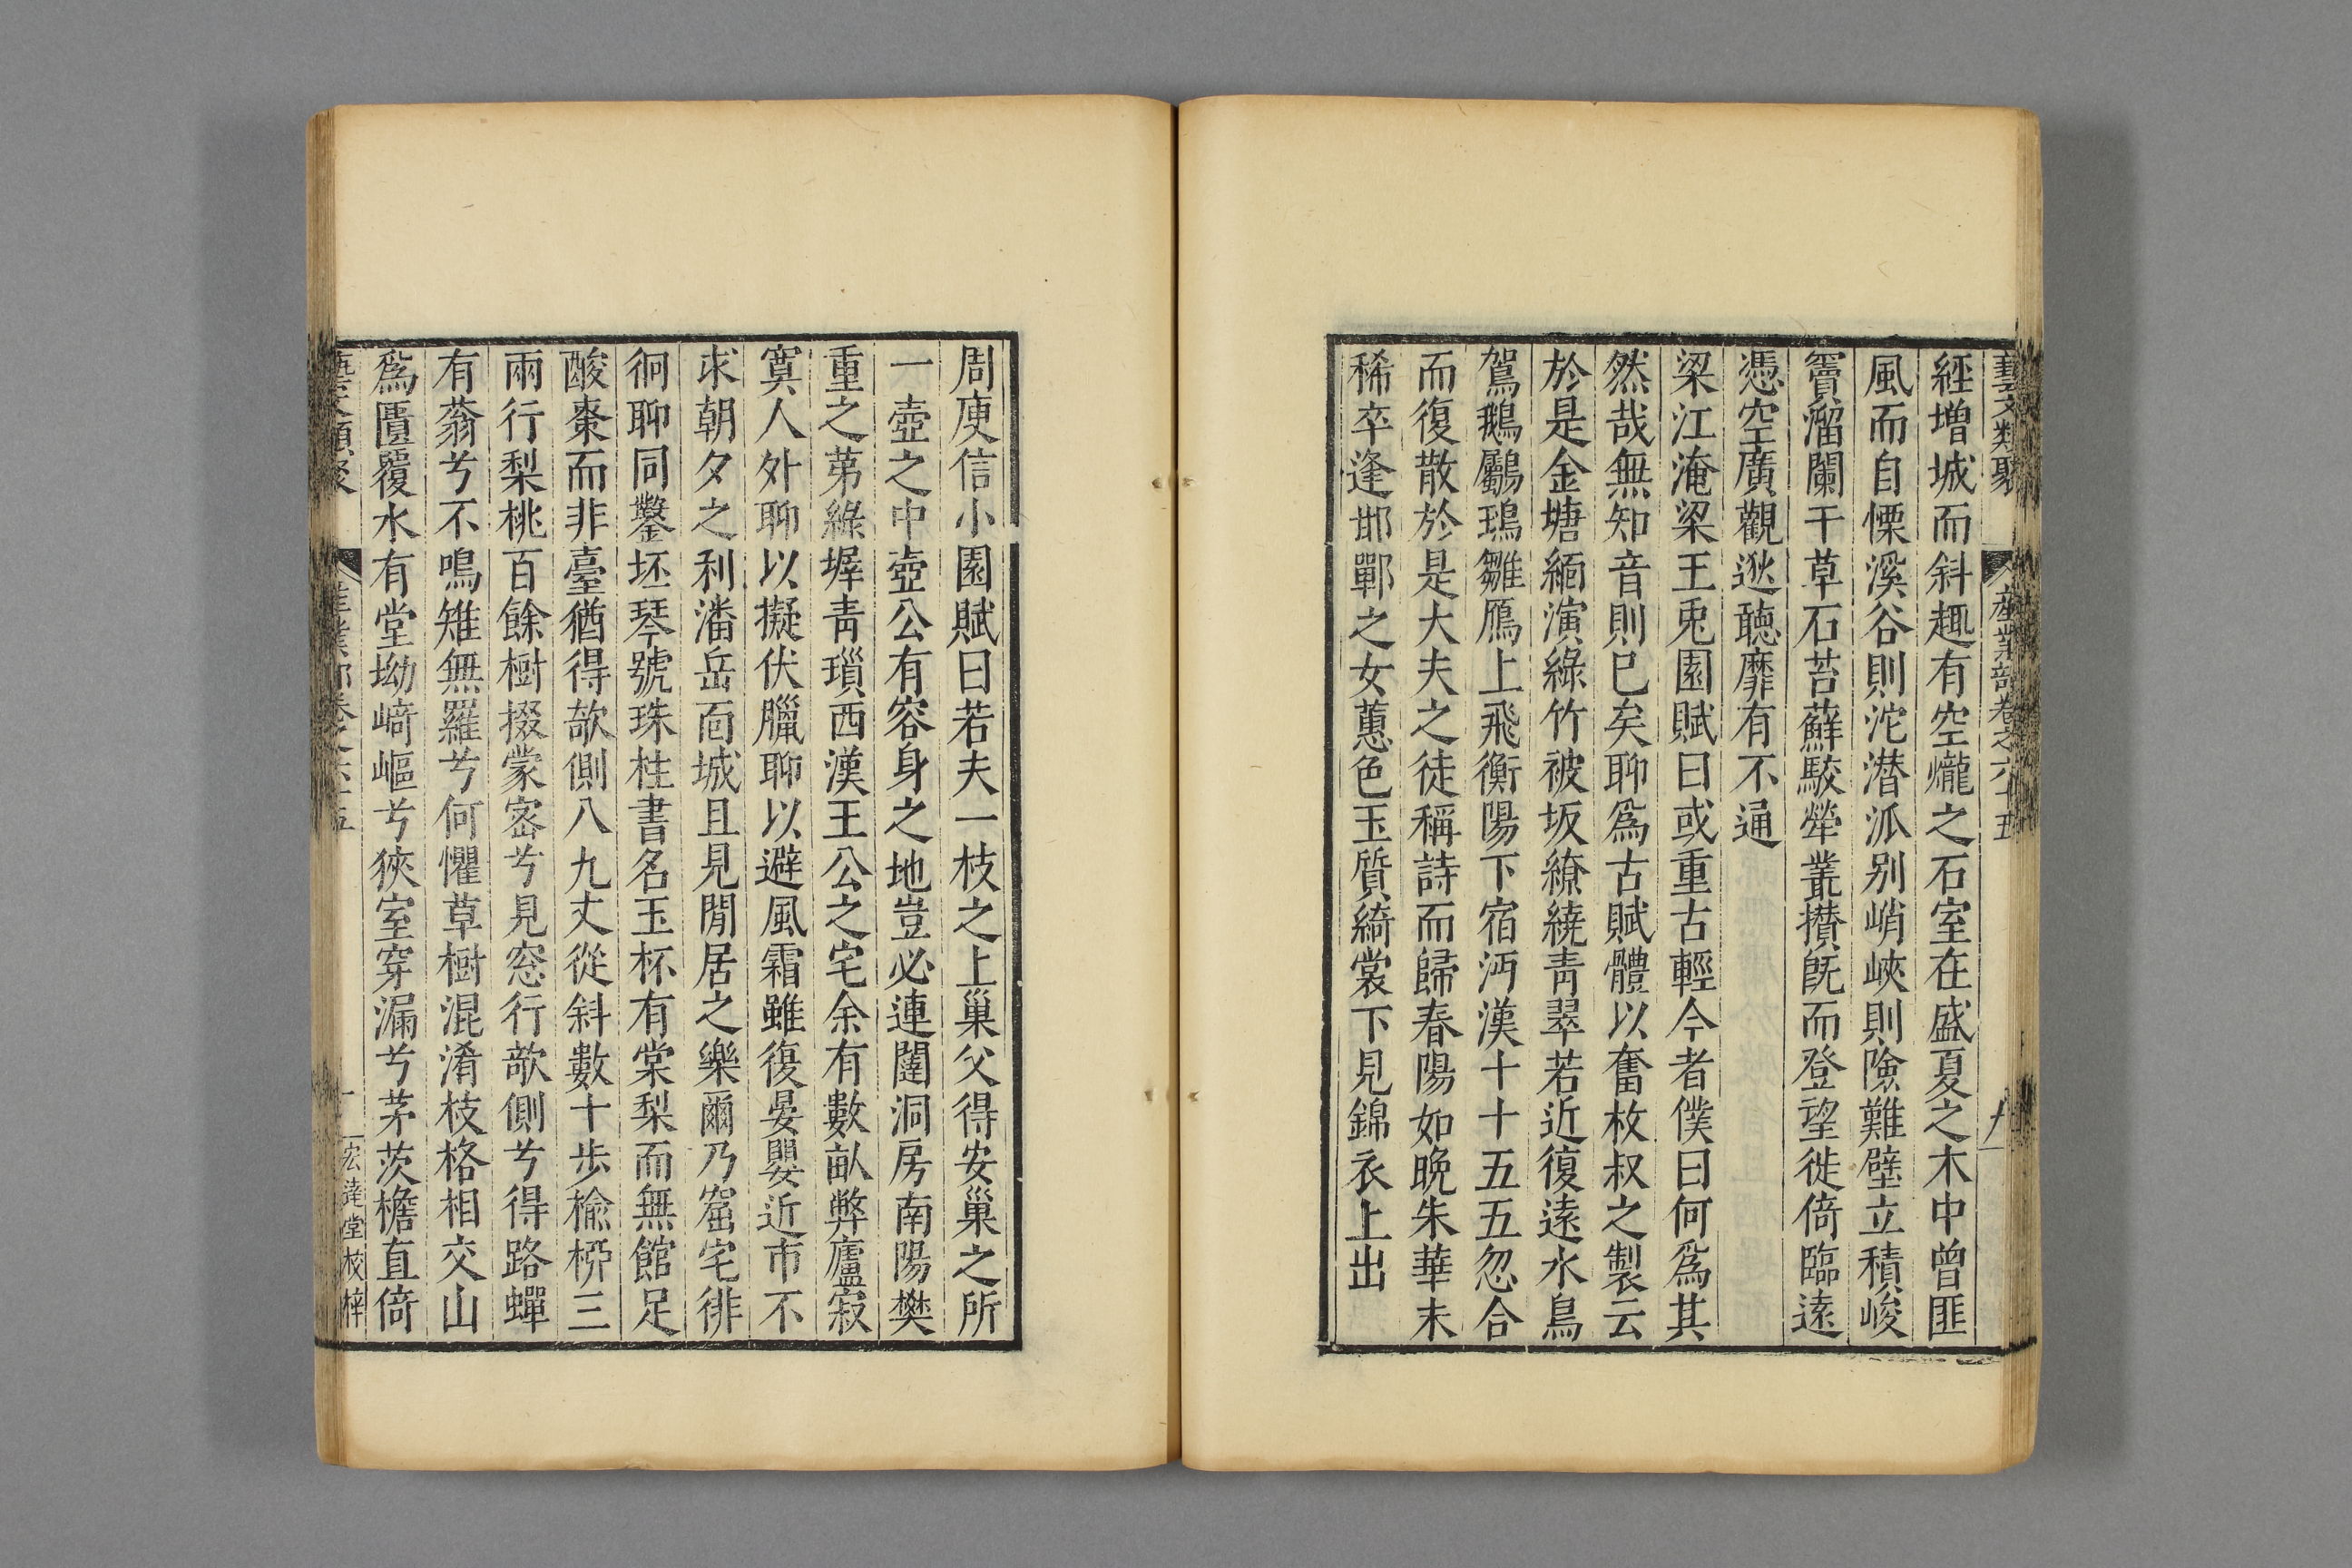 藝文類聚 產業部卷之六十五
經增城而斜趣有空巃之石室在盛夏之木中曾匪
風而自慄溪谷則沱潛派别峭峽則險難壁立積峻
竇溜闌干草石苔蘚駮犖叢攅旣而登望徙倚臨遠
憑空廣觀逖聽靡有不通
梁江淹梁王兎園賦曰或重古輕今者僕曰何爲其
然哉無知音則已矣聊爲古賦體以奮枚叔之製云
於是金塘緬演綠竹被坂繚繞青翠若近復遠水鳥
鴐鵝鸀鳿雛鴈上飛衡陽下宿沔漢十十五五忽合
而復散於是大夫之徒稱詩而歸春陽如晚朱華未
稀卒逢邯鄲之女蕙色玉質綺裳下見錦衣上出
周庾信小園賦曰若夫一枝之上巢父得安巢之所
一壺之中壺公有容身之地豈必連闥洞房南陽樊
重之第綠墀青瑣西漢王公之宅余有數畝弊廬寂
寞人外聊以擬伏臘聊以避風霜雖復晏嬰近市不
求朝夕之利潘岳面城且見閒居之樂爾乃窟宅徘
徊聊同鑿坯琴號珠柱書名玉杯有棠梨而無館足
酸棗而非臺猶得欹側八九丈從斜數十步榆桞三
兩行梨桃百餘樹掇蒙密兮見窓行欹側兮得路蟬
有蓊兮不鳴雉無羅兮何懼草樹混淆枝格相交山
爲匱覆水有堂坳﨑嶇兮狹室穿漏兮茅茨檐直倚
藝文類聚 產業部卷之六十五 宏達堂校梓